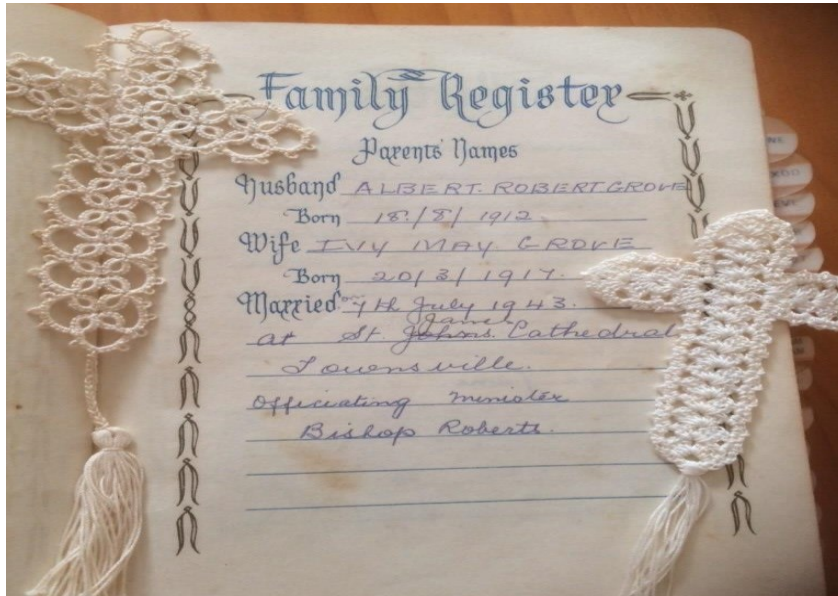 Family Register
Parents' Names
Husband ALBERT. ROBERT GROVE
Born 18./8/1912.
Wife IVY MAY. GROVE
Born 20/3/1917.
Married on 7th July 1943.
James
at St. Johns. Cathedral
Townsville.
Officiating minister
Bishop Roberts.